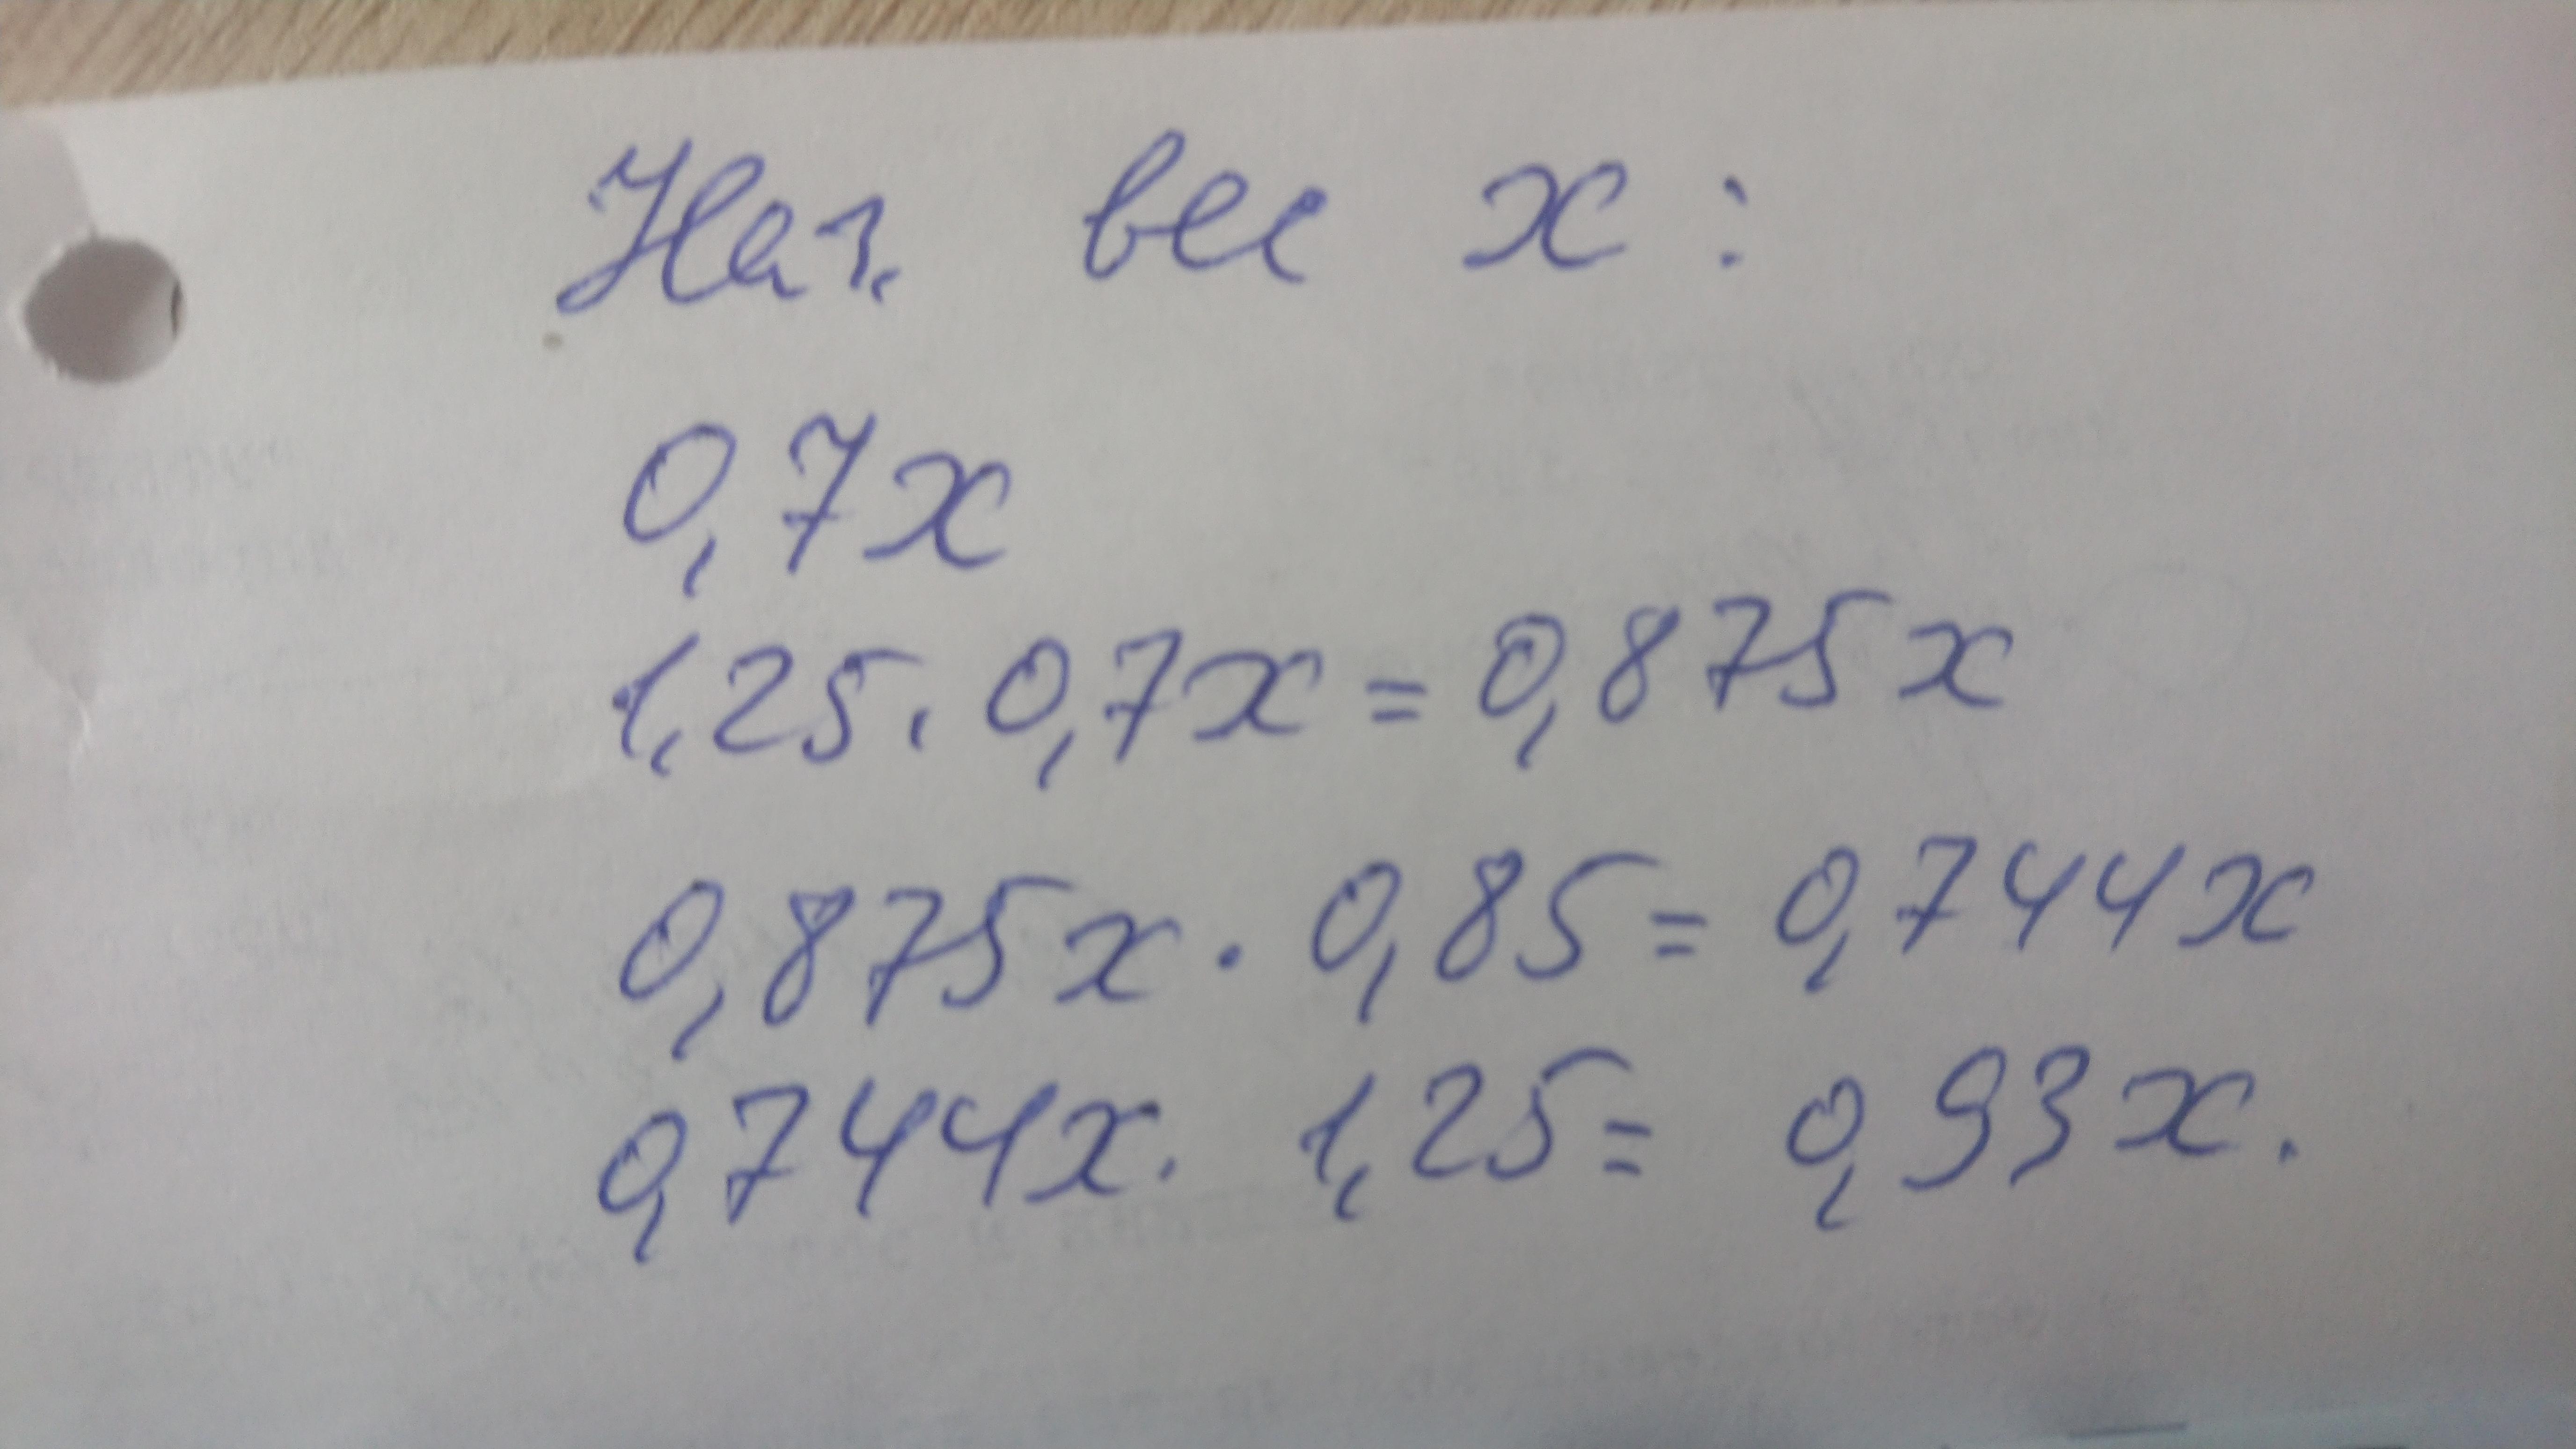 Нач. вес x:
0,7x
1,25 · 0,7x = 0,875x
0,875x · 0,85 = 0,744x
0,744x · 1,25 = 0,93x.